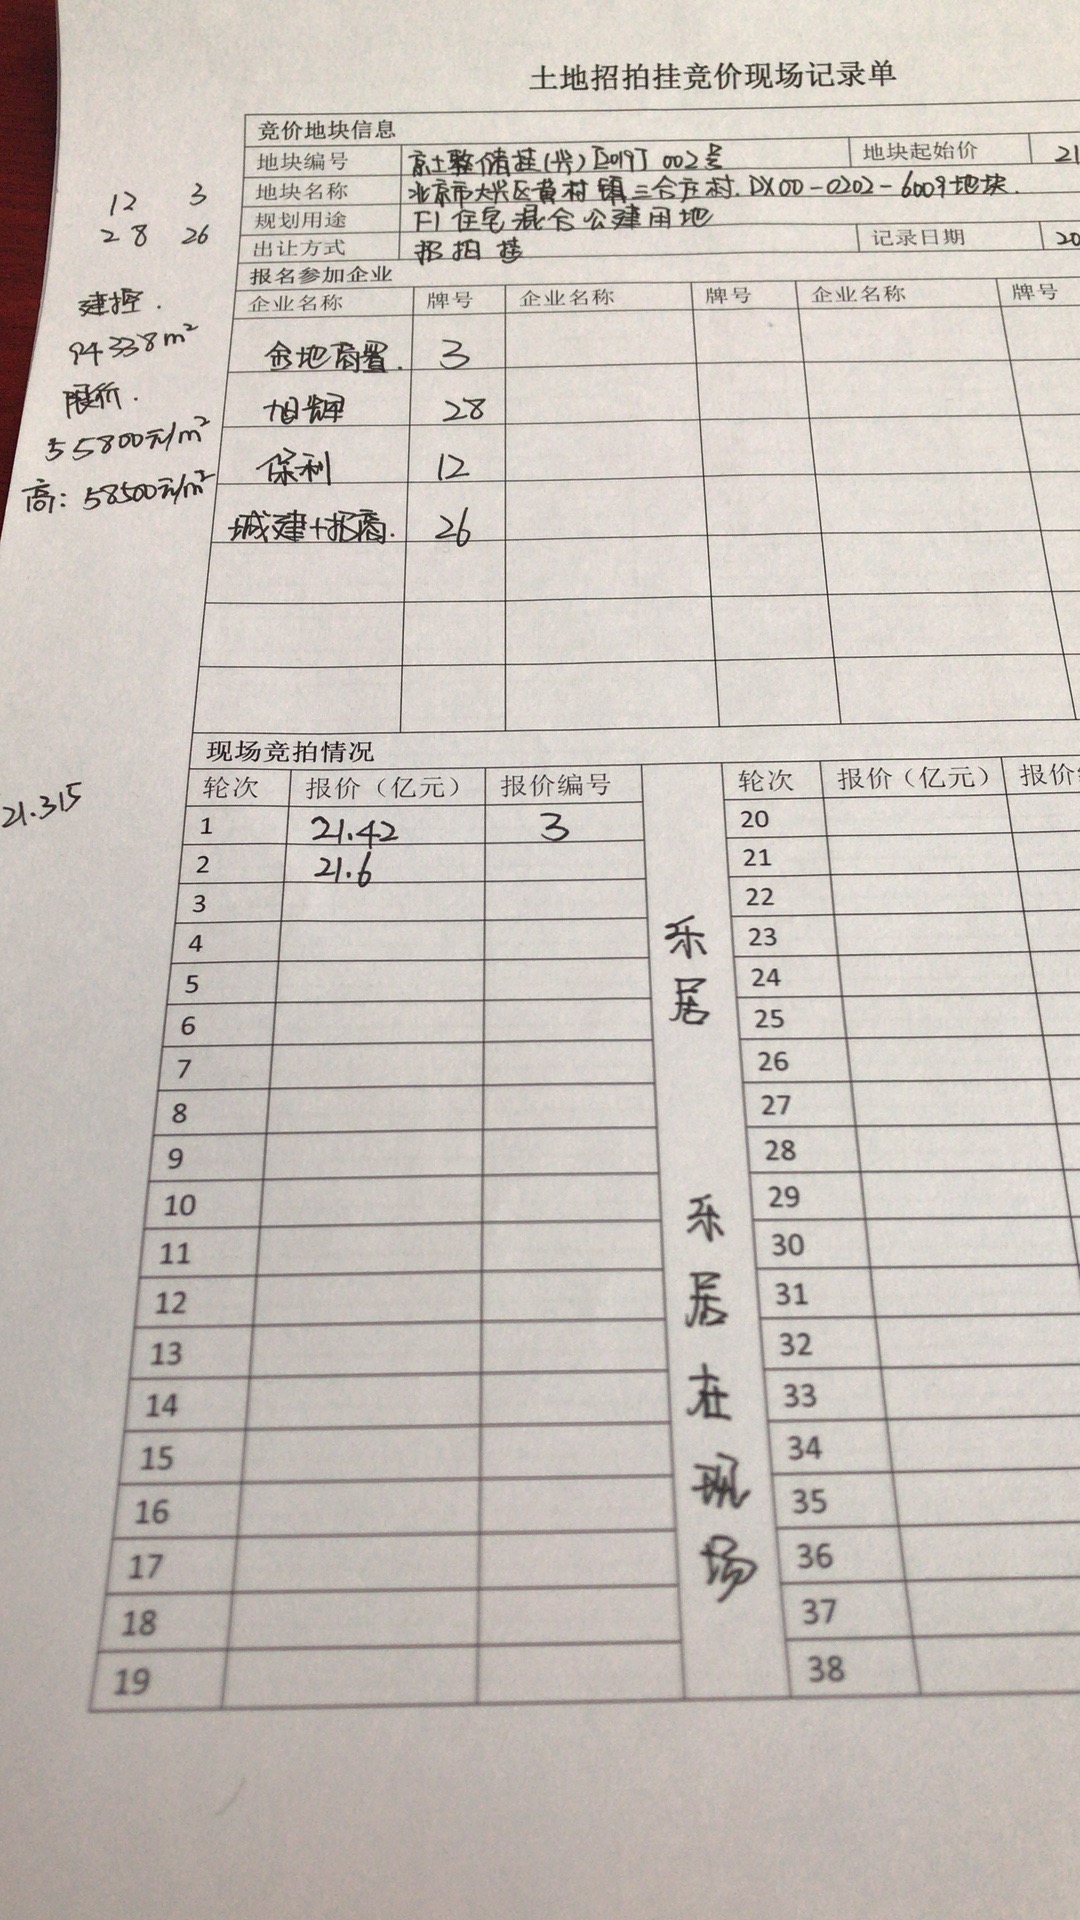 土地招拍挂竞价现场记录单
竞价地块信息
地块编号 京土整储挂(兴)[2019]002号 地块起始价 21
地块名称 北京市大兴区黄村镇三合庄村.DX00-0202-6009地块.
规划用途 F1住宅混合公建用地
出让方式 招拍挂 记录日期 20
报名参加企业
企业名称 牌号 企业名称 牌号 企业名称 牌号
金地商置. 3
旭辉 28
保利 12
城建+招商. 26
12 3
28 26
建控.
94338m²
限价.
55800元/m²
高:58500元/m²
现场竞拍情况
轮次 报价(亿元) 报价编号 轮次 报价(亿元) 报价
21.315
1 21.42 3 20
2 21.6 21
3 22
4 23
5 24
6 25
7 26
8 27
9 28
10 29
11 30
12 31
13 32
14 33
15 34
16 35
17 36
18 37
19 38
乐居
乐居在现场